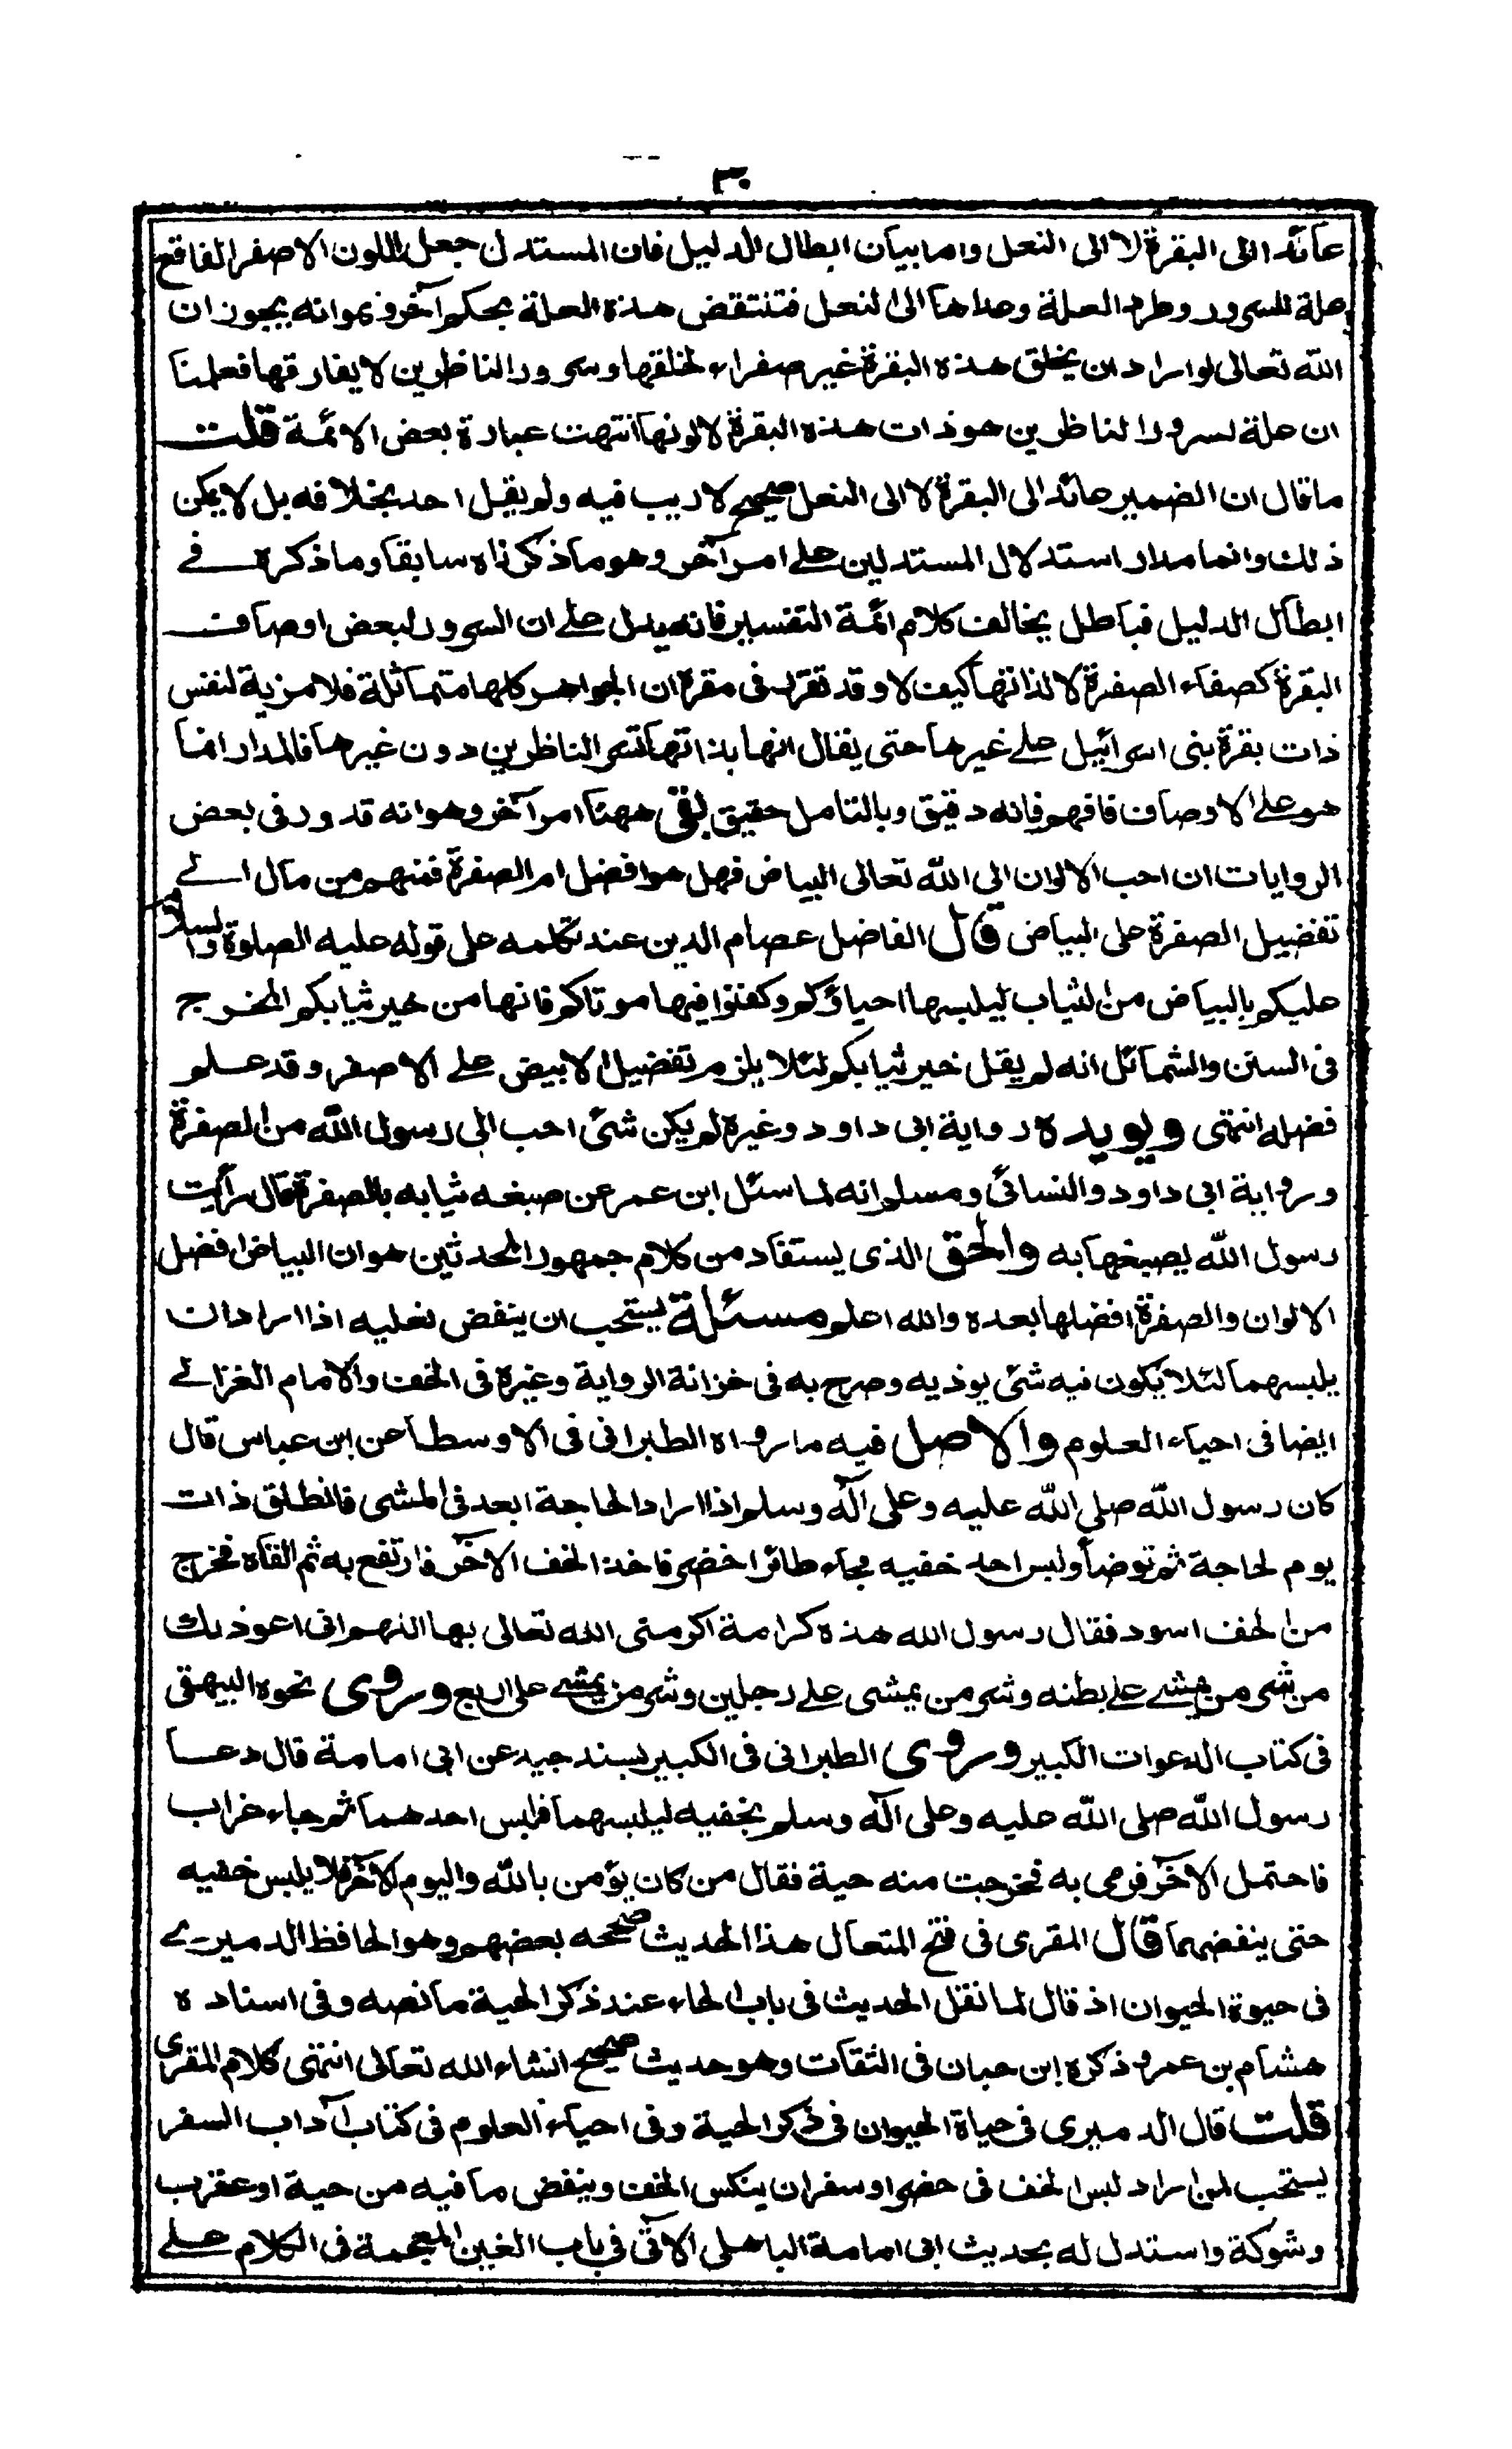 ٣٠
عائد الى البقرة لا الى النعل واما بيان ابطال الدليل فان المستدل جعل اللون الاصفر الفاقع
علة للسرور وطرد العلة وعداها الى النعل فتنتقض هذه العلة بحكم آخر وهوانه يجوز ان
الله تعالى لو اراد ان يخلق هذه البقرة غير صفراء لخلقها وسرور الناظرين لا يفارقها فعلمنا
ان علة لسرور الناظرين هو ذات هذه البقرة لا لونها انتهت عبارة بعض الائمة قلت
ما قال ان الضمير عائد الى البقرة لا الى النعل صحيح لا ريب فيه ولم يقل احد بخلافه بل لا يمكن
ذلك وانما مدار استدلال المستدلين على امر آخر وهو ما ذكرناه سابقا وما ذكره في
ابطال الدليل فباطل يخالف كلام ائمة التفسير فانه يدل على ان السرور لبعض اوصاف
البقرة كصفاء الصفرة لا لذاتها كيف لا وقد تقرر فى مقره ان الجواهر كلها متماثلة فلا مزية لنفس
ذات بقرة بنى اسرائيل على غيرها حتى يقال انها بذاتها تسر الناظرين دون غيرها فالمدار انما
هو على الاوصاف فافهم فانه دقيق وبالتامل حقيق بقى ههنا امر آخر وهو انه قد ورد فى بعض
الروايات ان احب الالوان الى الله تعالى البياض فهل هو افضل ام الصفرة فمنهم من مال الے
تفضيل الصفرة على البياض قال الفاضل عصام الدين عند تكلمه على قوله عليه الصلوة والسلام
عليكم بالبياض من الثياب ليلبسها احياؤكم وكفنوا فيها موتاكم فانها من خير ثيابكم المخرج
فى السنن والشمائل انه لم يقل خير ثيابكم لئلا يلزم تفضيل الابيض على الاصفر وقد علم
فضله انتهى ويويده رواية ابى داود وغيره لم يكن شئ احب الى رسول الله من الصفرة
ورواية ابى داود والنسائى ومسلم انه لما سئل ابن عمر عن صبغه ثيابه بالصفرة قال رأيت
رسول الله يصبغها به والحق الذى يستفاد من كلام جمهور المحدثين هو ان البياض افضل
الالوان والصفرة افضلها بعده والله اعلم مسئلة يستحب ان ينفض نعليه اذا اراد ان
يلبسهما لئلا يكون فيه شئ يوذيه وصرح به فى خزانة الرواية وغيره فى الخف والامام الغزالے
ايضا فى احياء العلوم والاصل فيه ما رواه الطبرانى فى الاوسط عن ابن عباس قال
كان رسول الله صلى الله عليه وعلى آله وسلم اذا اراد الحاجة ابعد فى المشى فانطلق ذات
يوم لحاجة ثم توضأ ولبس احد خفيه فجاء طائر اخضر فاخذ الخف الاخر فارتفع به ثم القاه فخرج
من الخف اسود فقال رسول الله هذه كرامة اكرمنى الله تعالى بها اللهم انى اعوذ بك
من شر من يمشے على بطنه وشر من يمشى على رجلين وشر من يمشے على اربع وروى نحوه البيهقى
فى كتاب الدعوات الكبير وروى الطبرانى فى الكبير بسند جيد عن ابى امامة قال دعا
رسول الله صلى الله عليه وعلى آله وسلم بخفيه ليلبسهما فلبس احدهما ثم جاء غراب
فاحتمل الآخر فرمى به فخرجت منه حية فقال من كان يؤمن بالله واليوم الآخر فلا يلبس خفيه
حتى ينفضهما قال المقرى فى فتح المتعال هذا الحديث صححه بعضهم وهو الحافظ الدميرے
فى حيوة الحيوان اذ قال لما نقل الحديث فى باب الحاء عند ذكر الحية ما نصه وفى اسناده
هشام بن عمرو ذكره ابن حبان فى الثقات وهو حديث صحيح انشاء الله تعالى انتهى كلام المقرى
قلت قال الدميرى فى حياة الحيوان فى ذكر الحية وفى احياء العلوم فى كتاب آداب السفر
يستحب لمن اراد لبس الخف فى حضر او سفر ان ينكس الخف وينفض ما فيه من حية او عقرب
وشوكة واستدل له بحديث ابى امامة الباهلى الآتى فى باب الغين المعجمة فى الكلام على